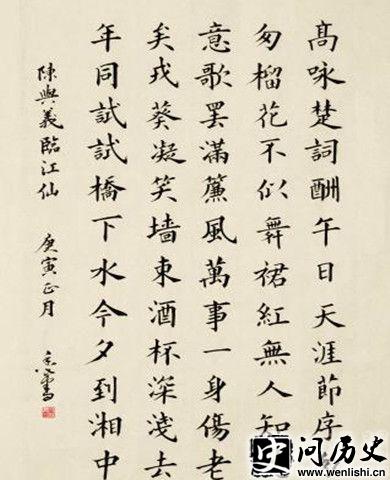 髙咏楚詞酬午日天涯節序
匆榴花不似舞裙紅無人知
意歌罷滿簾風萬事一身傷老
矣戎葵凝笑墙東酒杯深淺去
年同試試橋下水今夕到湘中
陳與義臨江仙 庚寅正月
问历史
www.wenlishi.com